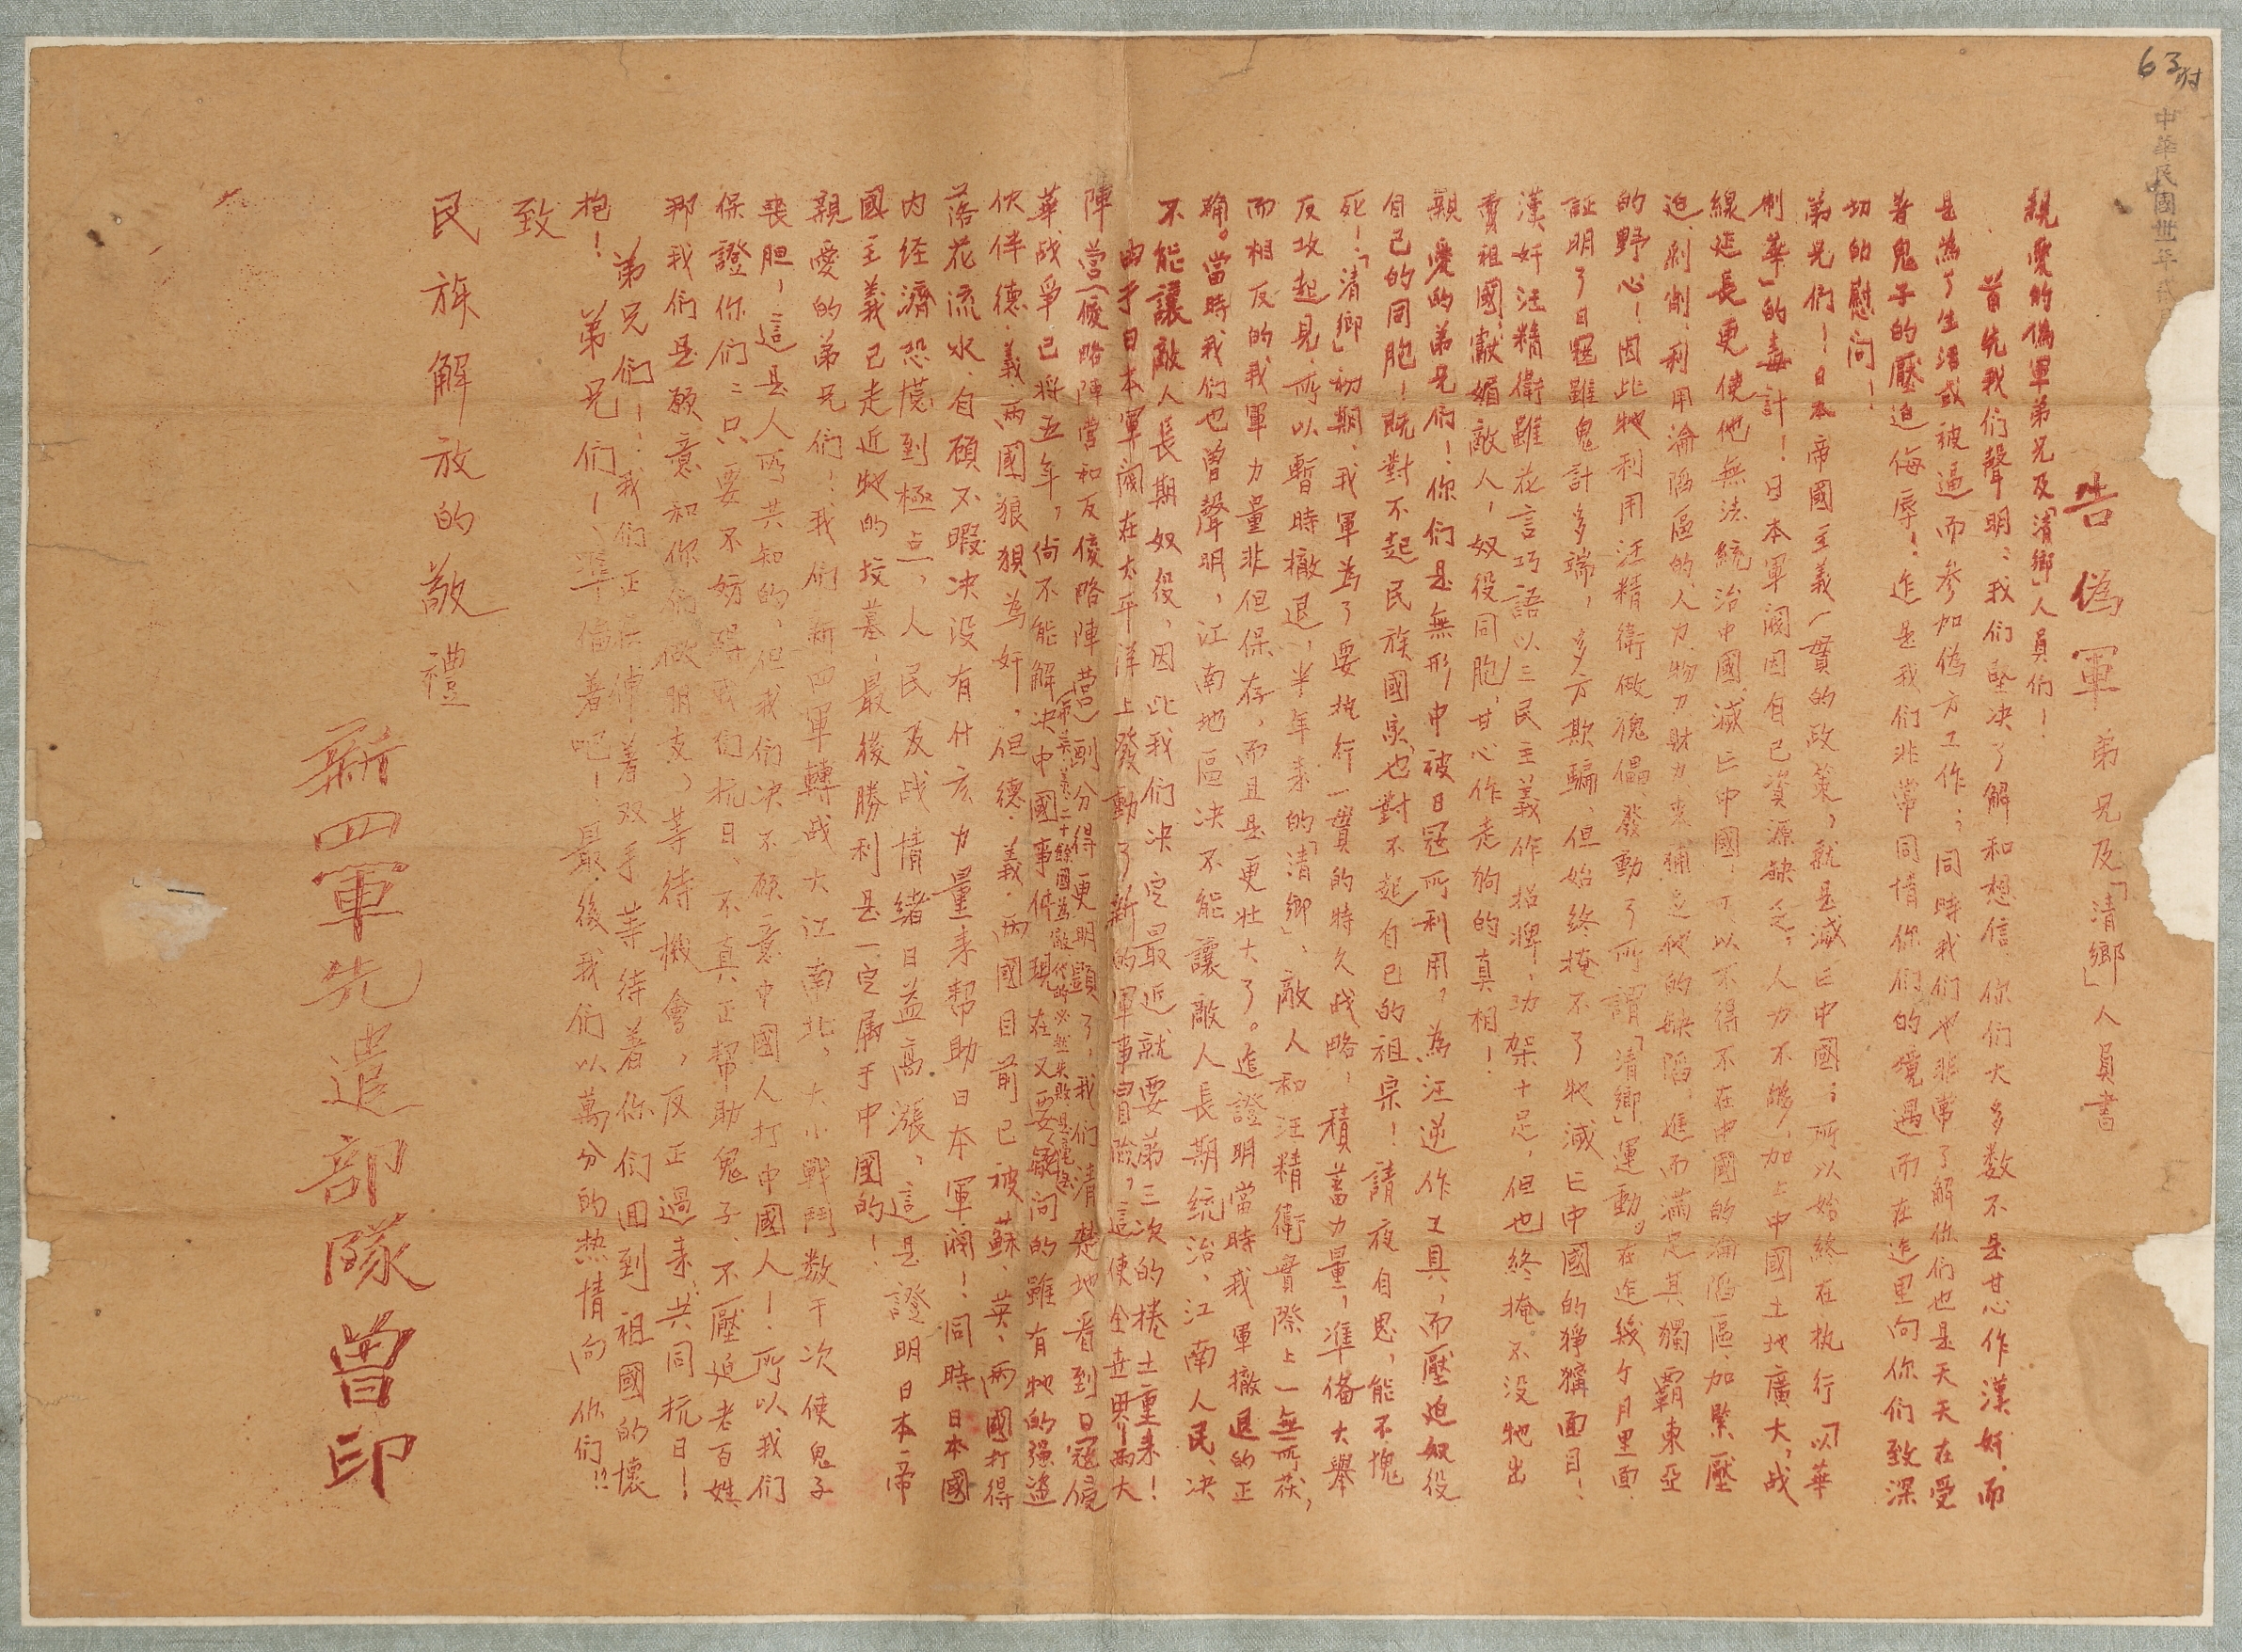 63附
中華民國卅年
告偽軍弟兄及「清鄉」人員書
親愛的偽軍弟兄及「清鄉」人員们！
首先我们聲明：我们堅决了解和想信．你们大多数不是甘心作漢奸．而
是為了生活或被逼而参加偽方工作；同時我们也非常了解你们也是天天在受
着鬼子的壓迫侮辱！這是我们非常同情你们的境遇而在這里向你们致深
切的慰问！
弟兄们！日本帝國主義一貫的政策，就是滅亡中國；所以始終在执行「以華
制華」的毒計！日本軍阀因自己資源缺乏，人力不够，加上中國土地廣大，战
線延長更使他無法統治中國、滅亡中國，可以不得不在中國的淪陷區、加緊壓
迫、剥削、利用淪陷區的、人力、物力财力来補充他的缺陷，進而滿足其獨覇東亞
的野心！因此牠利用汪精衛做傀儡、發動了所謂「清鄉」運動。在這幾个月里面
証明了日寇雖鬼計多端，多方欺騙、但始終掩不了牠滅亡中國的猙獰面目！
漢奸汪精衛雖花言巧語以三民主義作招牌，功架十足，但也終掩不没牠出
賣祖國，獻媚敵人，奴役同胞，甘心作走狗的真相！
親愛的弟兄们！你们是無形中被日寇所利用，為汪逆作工具，而壓迫奴役
自己的同胞！既對不起民族國家，也對不起自己的祖宗！請夜自思，能不愧
死！「清鄉」初期，我軍為了要执行一貫的特久战略，積蓄力量，準備大舉
反攻起見，所以暫時撤退，半年来的「清鄉」、敵人和汪精衛實際上一無所获，
而相反的我軍力量非但保存，而且是更壮大了。這證明當時我軍撤退的正
確。當時我们也曾聲明，江南地區决不能讓敵人長期統治、江南人民、决
不能讓敵人長期奴役，因此我们决定最近就要第三次的捲土重来！
由于日本軍阀在太平洋上發動了新的軍事冒險，這使全世界两大
陣营（侵略陣营和反侵略陣营）劃分得更明顯了，我们清楚地看到日寇侵
華战爭已将五年，尚不能解决中國事件現在又要（和英美二十餘國為敵，代的必然失敗是毫無）疑问的雖有牠的强盗
伙伴德．義．两國狼狽為奸．但德．義．两國目前已被蘇、英、两國打得
落花流水．自顧不暇决没有什么力量来幫助日本軍阀！同時日本國
内经濟恐慌到極点，人民反战情绪日益高漲，這是證明日本帝
國主義已走近牠的坟墓．最後勝利是一定属于中國的！
親愛的弟兄们！我们新四軍轉战大江南北，大小戰鬥数千次使鬼子
丧胆，這是人所共知的，但我们决不願意中國人打中國人！所以我们
保證你们：只要不妨碍我们抗日、不真正幫助鬼子、不壓迫老百姓
那我们是願意和你们做朋友，等待機會，反正過来，共同抗日！
弟兄们！：我们正在伸着双手等待着你们囬到祖國的懷
抱！弟兄们！準備着吧！最後我们以萬分的热情向你们!!
致
民族解放的敬禮
新四軍先遣部隊曾印